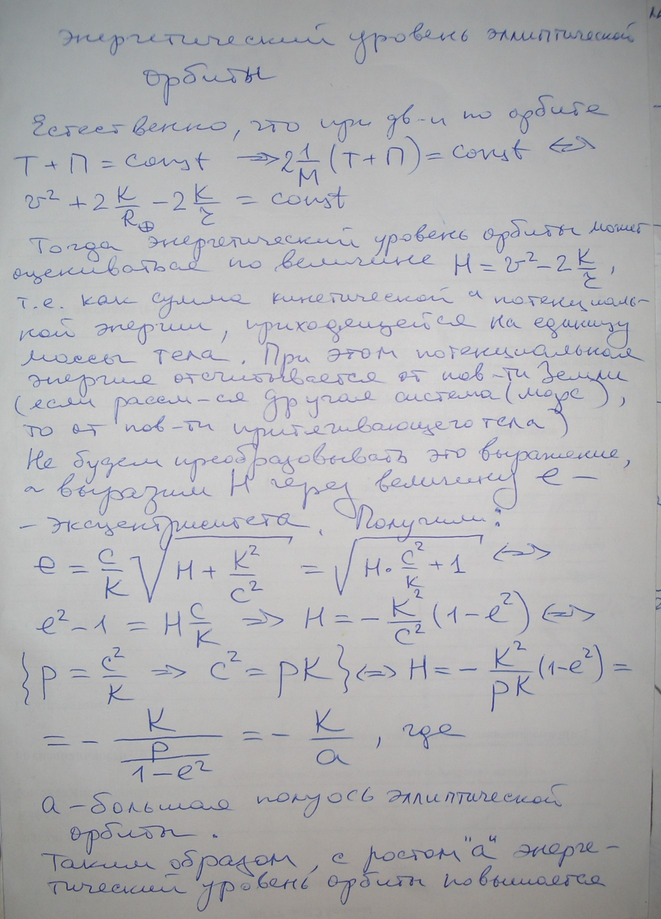 Энергетический уровень эллиптической
орбиты
Естественно, что при дв-и по орбите
T + П = const ⇒ 2 1/M (T + П) = const ⇔
v² + 2 K/R⊕ − 2 K/r = const
Тогда энергетический уровень орбиты может
оцениваться по величине H = v² − 2 K/r,
т.е. как сумма кинетической и потенциаль-
ной энергии, приходящейся на единицу
массы тела. При этом потенциальная
энергия отсчитывается от пов-ти Земли
(если рассм-ся другая система (марс),
то от пов-ти притягивающего тела)
Не будем преобразовывать это выражение,
а выразим H через величину e −
− эксцентриситета. Получили:
e = c/K √(H + K²/c²) = √(H · c²/K + 1) ⇔
e² − 1 = H c/K ⇒ H = − K²/c² (1 − e²) ⇔
{p = c²/K ⇒ c² = pK} ⇔ H = − K²/pK (1 − e²) =
= − K/(p/(1 − e²)) = − K/a, где
a − большая полуось эллиптической
орбиты.
Таким образом, с ростом "a" энерге-
тический уровень орбиты повышается